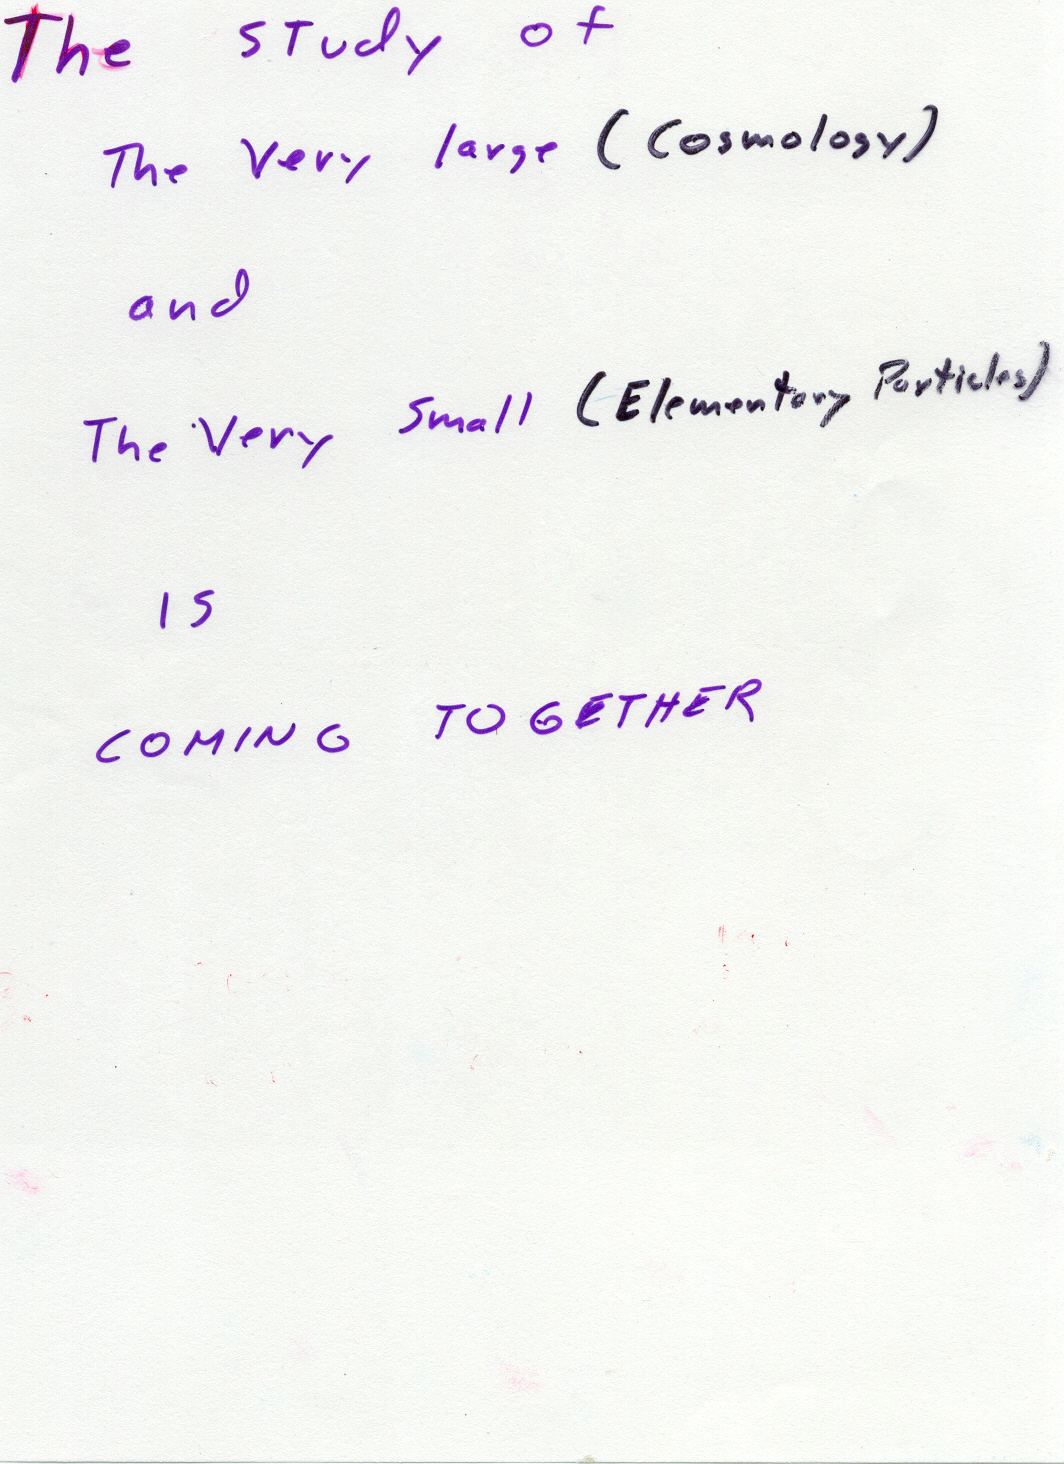 The study of
The Very large (Cosmology)
and
The Very Small (Elementary Particles)
IS
COMING TOGETHER